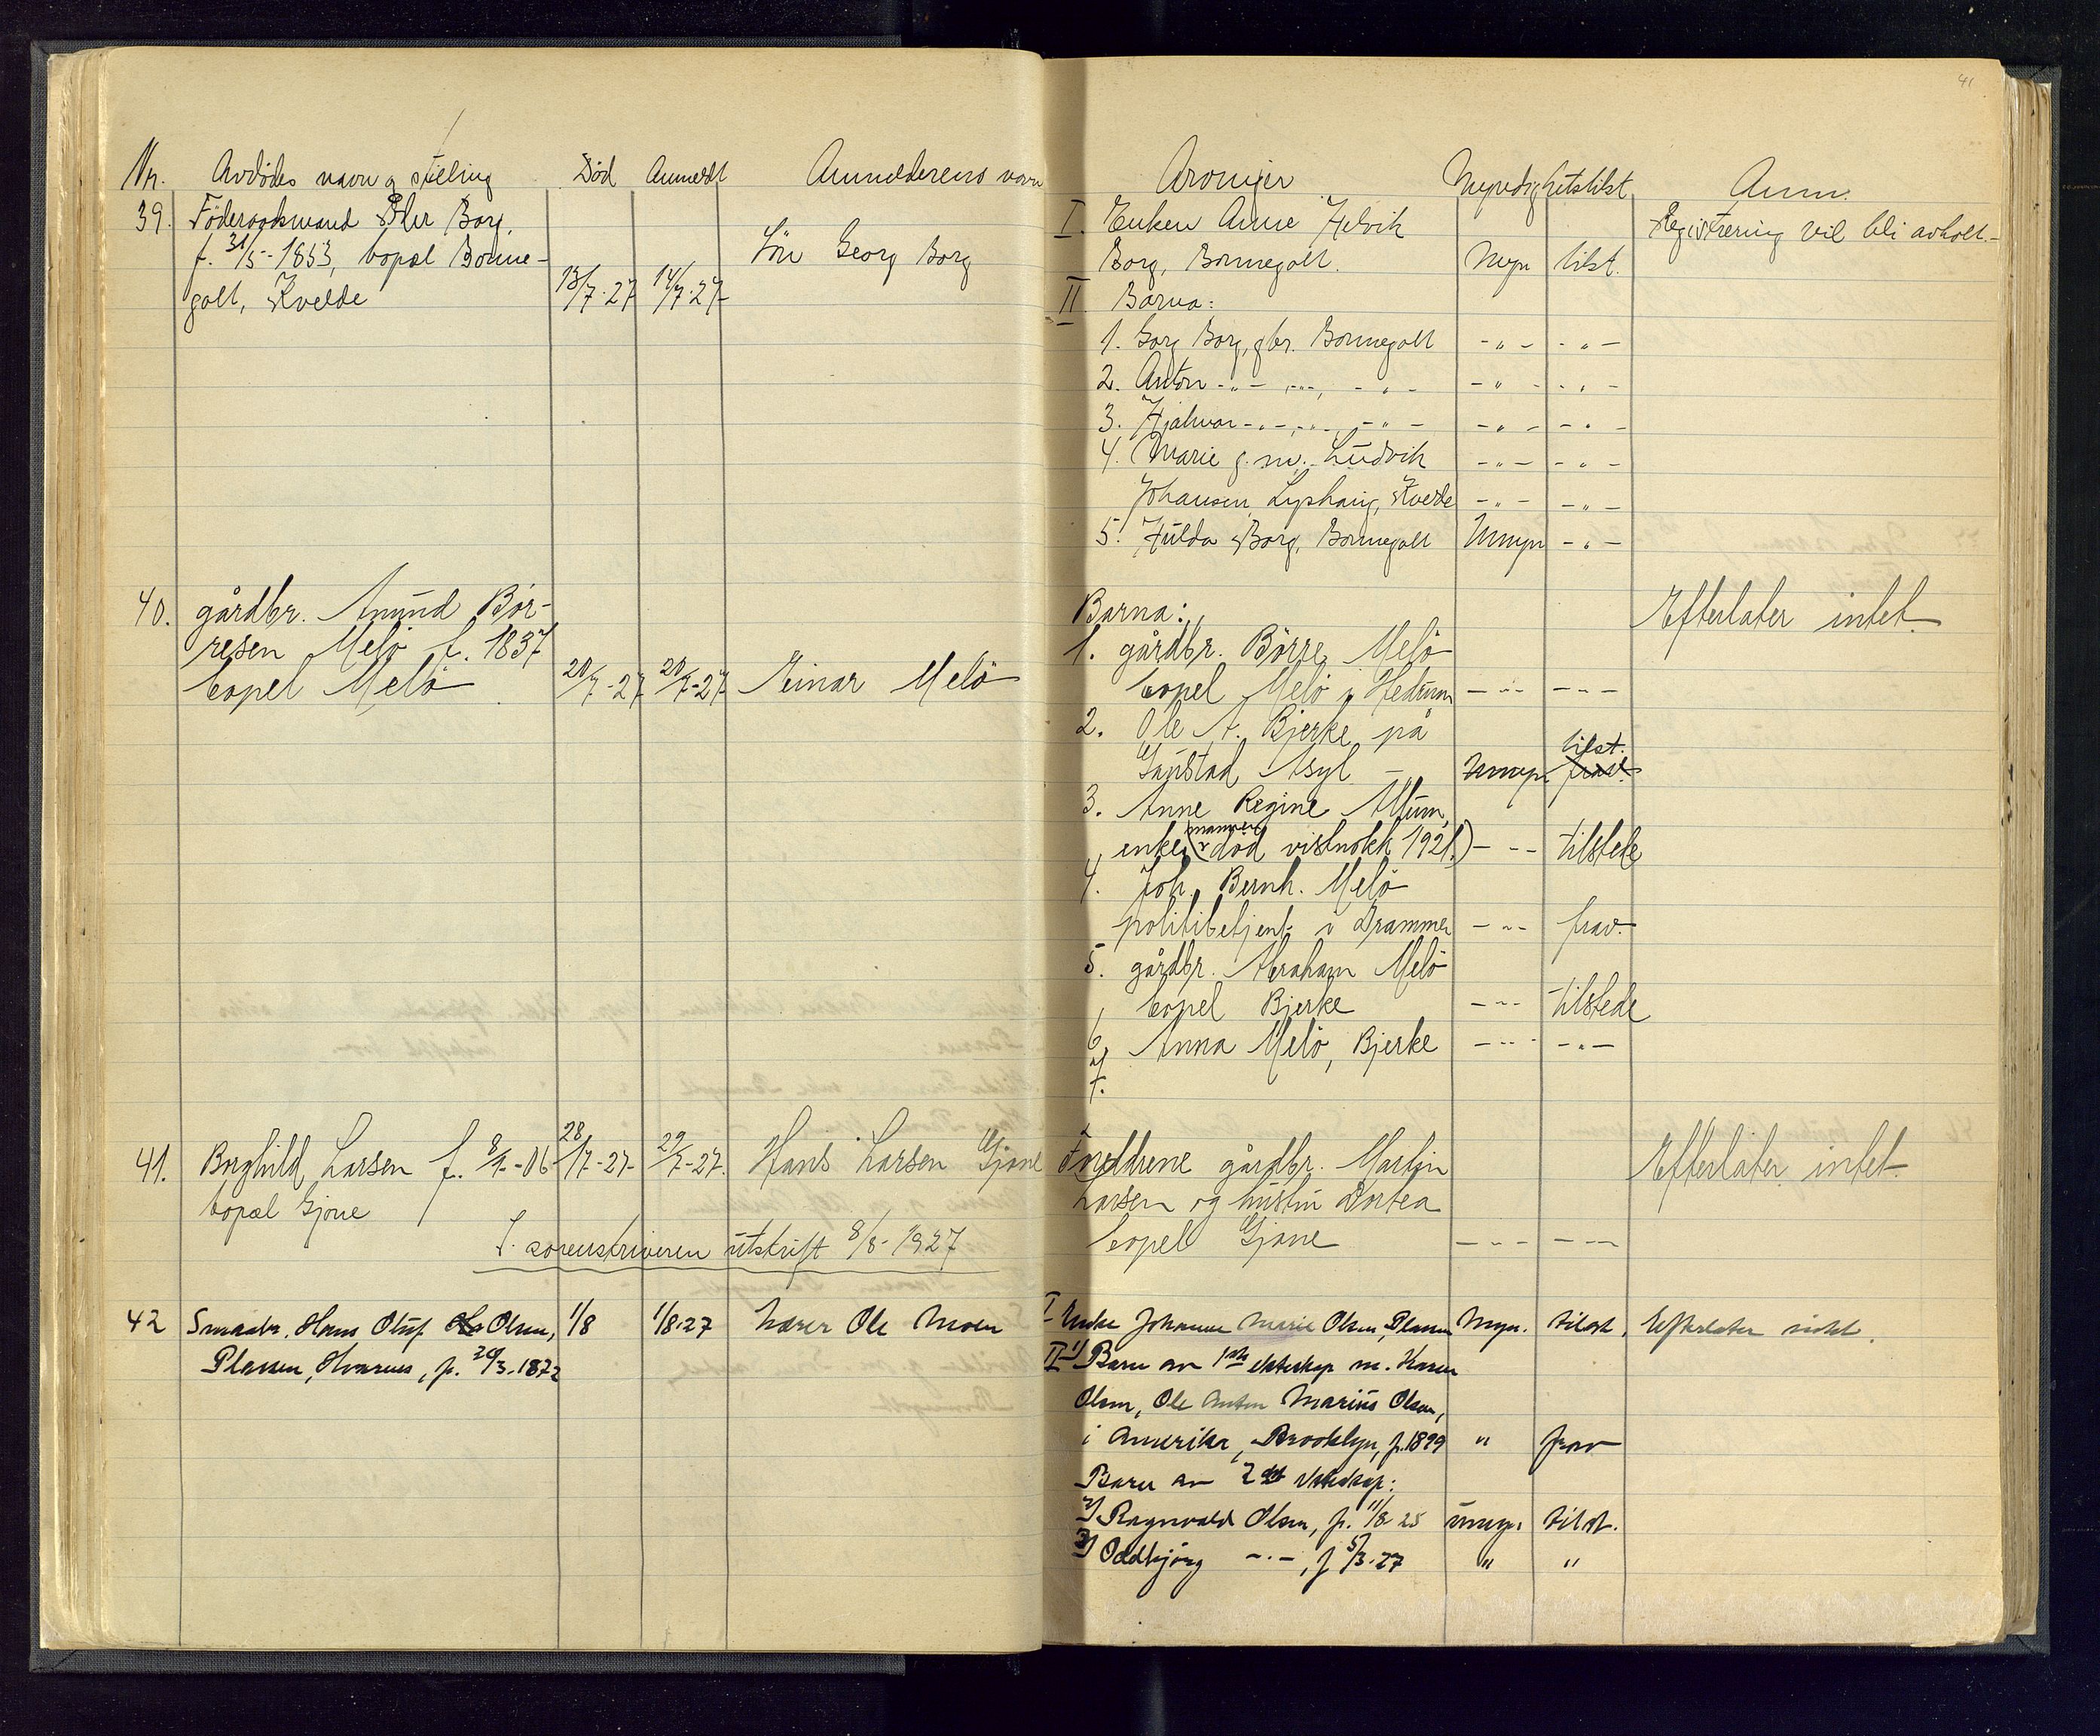 41
Nr. Avdödes navn og stilling Död Anmeldt Anmelderens navn
39. Föderaadsmand Peder Borg,
f. 31/5-1853, bopæl Bonne-
golt, Kvelde 13/7-27 14/7-27
Sön Georg Borg
40. gårdbr. Amund Bör-
resen Melö f. 1837
bopel Melö 20/7-27 20/7-27 Einar Melö
41. Borghild Larsen f. 8/9-06 28/7-27 29/7-27. Hans Larsen Gjone
bopæl Gjone
T. sorenskriveren utskrift 8/8-1927
42 Smaabr. Hans Oluf Olsen, 1/8 1/8-27 Lærer Ole Moen
Plassen, Hvarnes, f. 20/3-1872
Arvinger Myndighet tilst. Anm.
I. Enken Anne Helvik Registrering vil bli avholt.
Borg, Bonnegolt. Myn tilst.
II. Barna:
1. Georg Borg, gbr. Bonnegolt -"- -"-
2. Anton -"- -"-, -"- -"- -"-
3. Hjalmar -"- -"-, -"- -"- -"-
4. Marie g. m. Ludvik -"- -"-
Johansen Lyshaug, Kvelde -"- -"-
5. Hulda Borg, Bonnegolt Umyn -"-
Barna: Efterlater intet.
1. gårdbr. Börre Melö
bopel Melö i Hedrum -"- -"-
2. Ole A. Bjerke på
Gaustad Asyl - Umyn tilst. frav.
3. Anne Regine Allum,
enke (mannen död vistnokk 1921.) -"- tilstede
4. Joh. Bernh. Melö
politibetjent i Drammen -"- frav.
5. gårdbr. Abraham Melö
bopel Bjerke -"- tilstede
6. Anna Melö, Bjerke -"- -"-
7.
Foreldrene gårdbr. Martin Efterlater intet.
Larsen og hustru Dortea
bopel Gjone -"- -"-
I Enke Johanne Marie Olsen, Plassen Myn. tilst. Efterlater intet.
II 1) Barn av 1ste ekteskap m. Karen
Olsen, Ole Anton Marius Olsen,
i Amerika, Brooklyn, f. 1899 " frav
Barn av 2det ekteskap:
2) Ragnvald Olsen, f. 11/8-25 umyn. tilst.
3) Oddbjörg -"-, f 5/3-27 " "